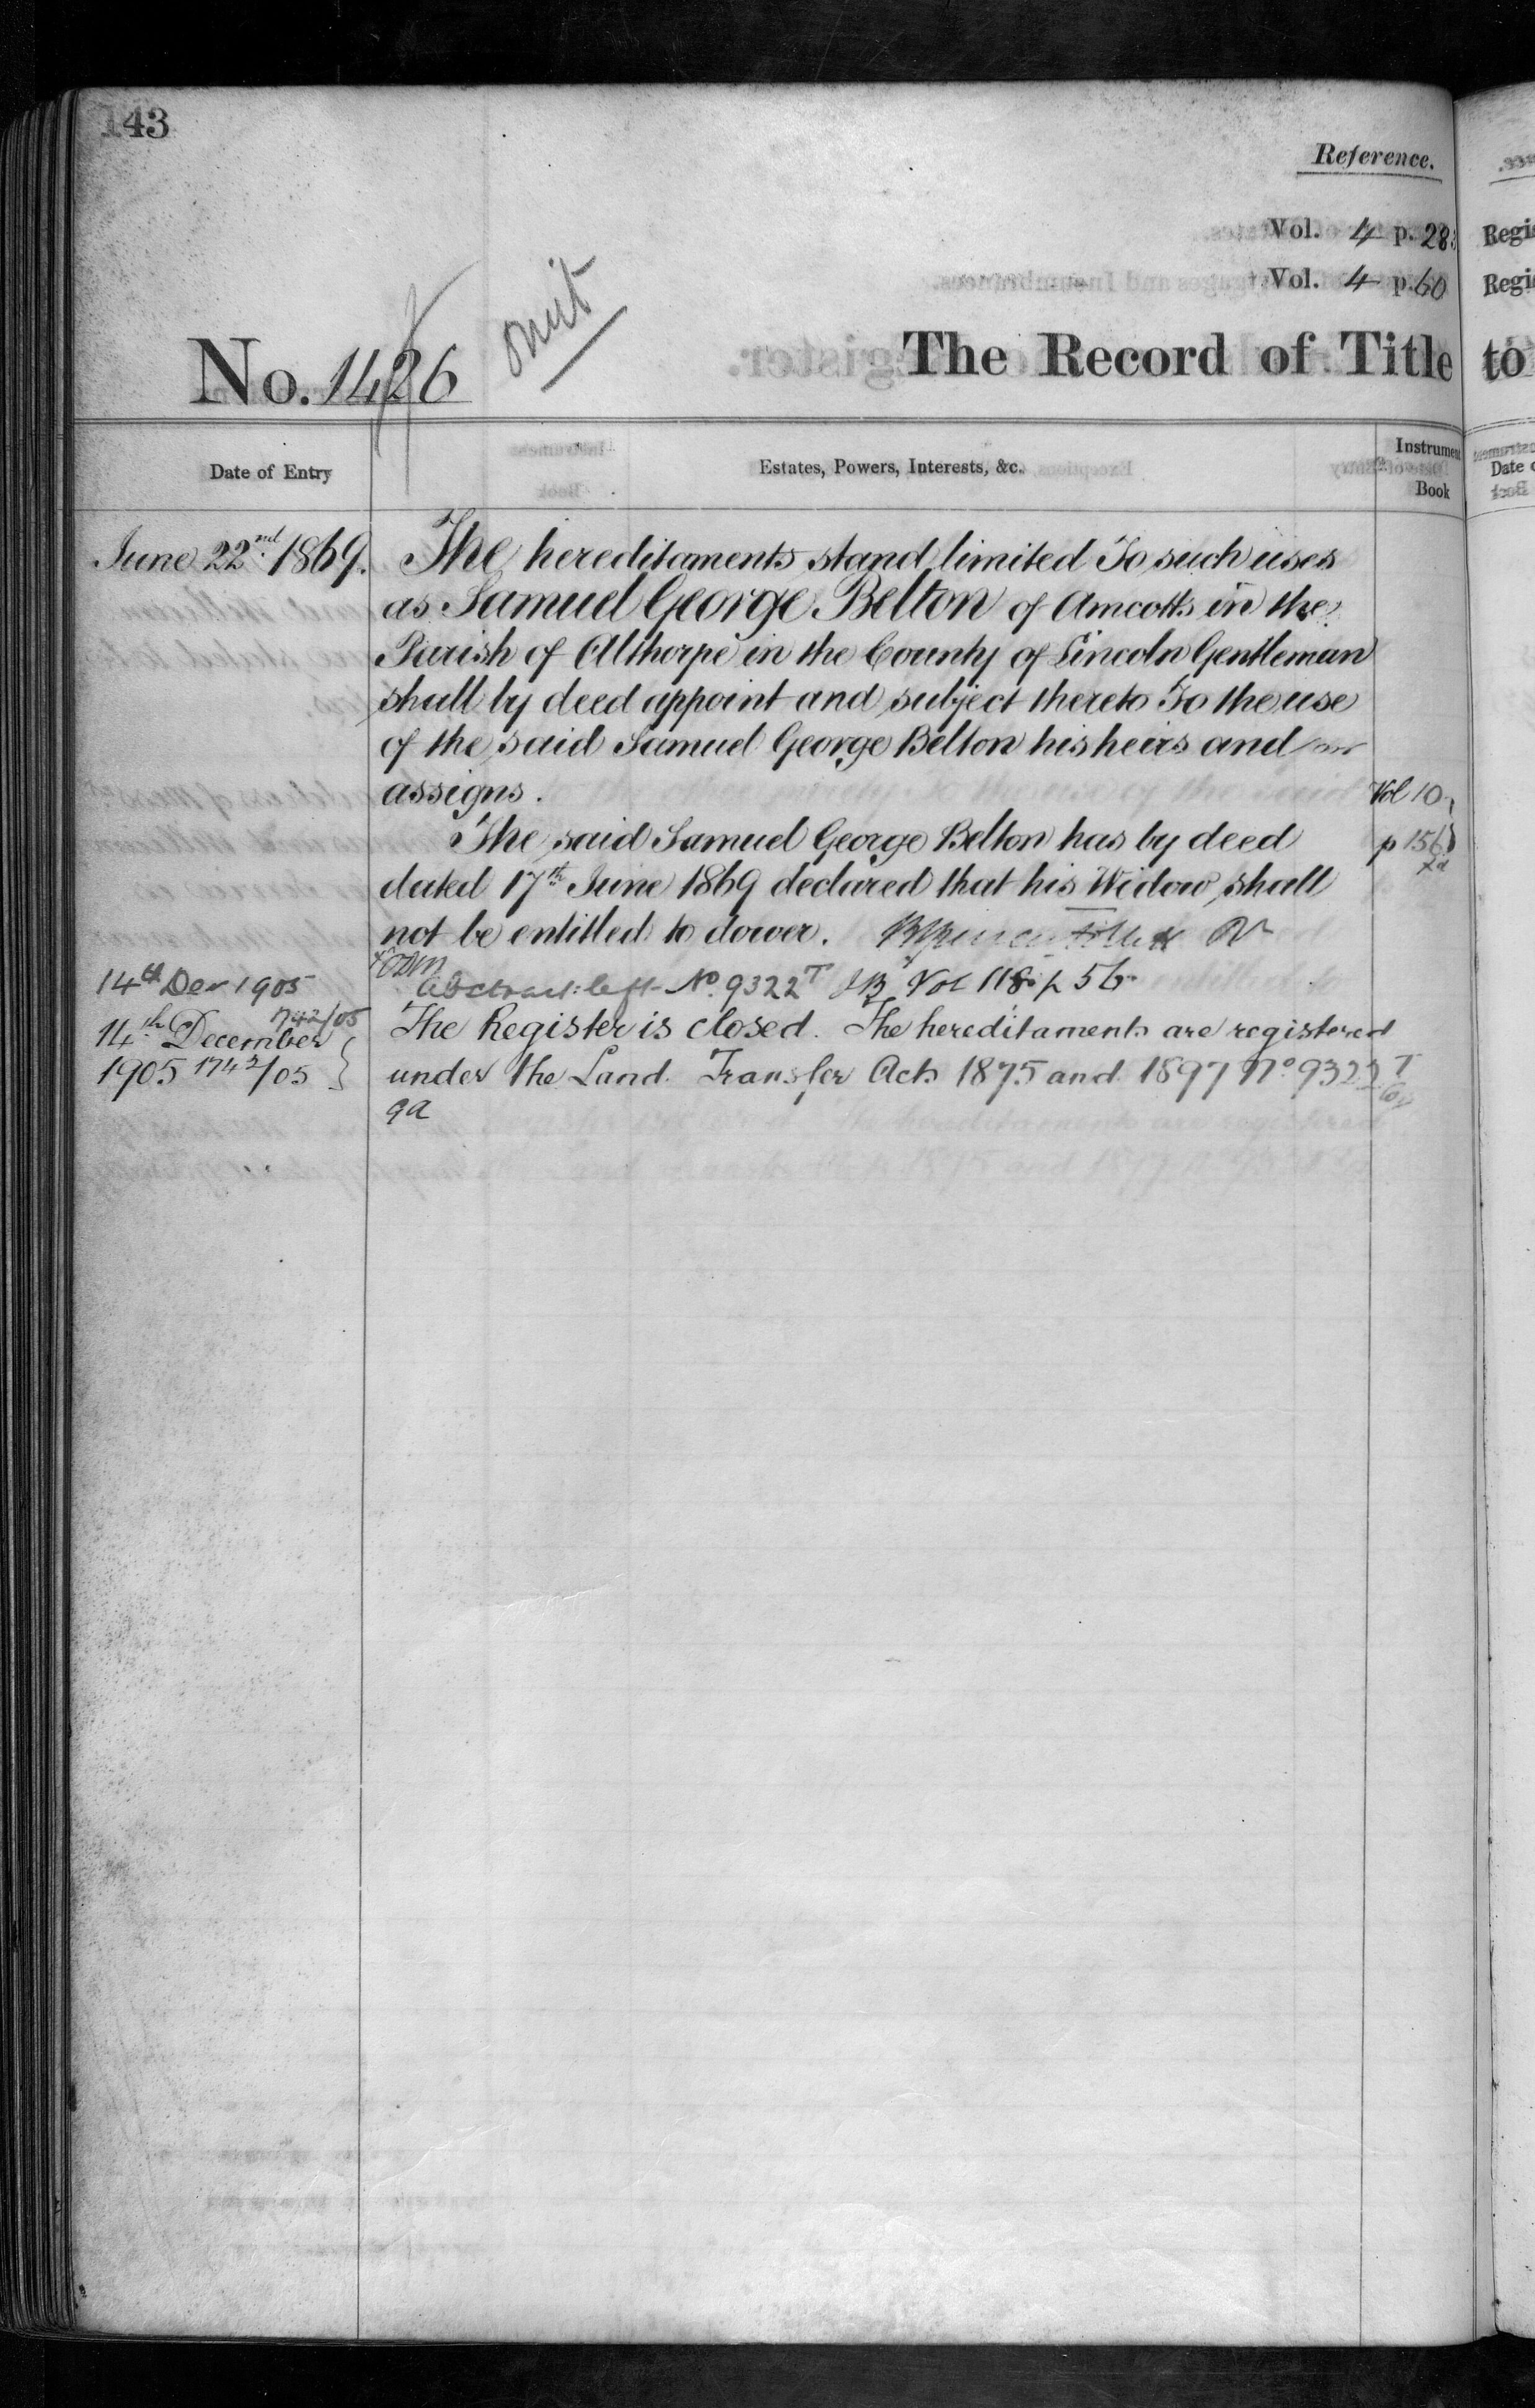 143
Reference.
Vol. 4 p. 28
Vol. 4 p. 60
omit
No. 1426
The Record of Title to
Date of Entry
Estates, Powers, Interests, &c.
Instrument
Book
June 22nd 1869. The hereditaments stand limited To such uses
as Samuel George Belton of Amcotts in the
Parish of Althorpe in the County of Lincoln Gentleman
shall by deed appoint and subject thereto To the use
of the said Samuel George Belton his heirs and
assigns. Vol 10
The said Samuel George Belton has by deed p 156
dated 17th June 1869 declared that his Widow shall
not be entitled to dower.
14th Dec 1905 Abstract: left No. 9322 T IB Vol 118 p 56
1742/05
14th December The Register is closed. The hereditaments are registered
1905 1742/05 under the Land Transfer Acts 1875 and 1897 No 9322 T
Regis
Regis
Date o